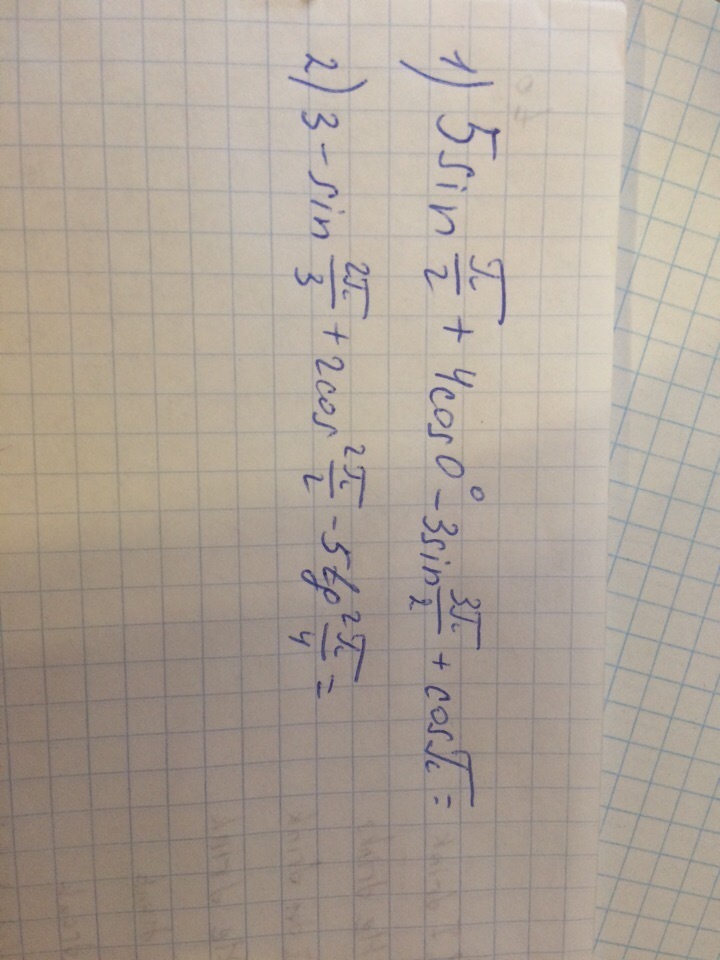 1) 5 sin π/2 + 4cos0° - 3sin 3π/2 + cosπ =
2) 3 - sin 2π/3 + 2cos ²π/2 - 5tg ²π/4 =